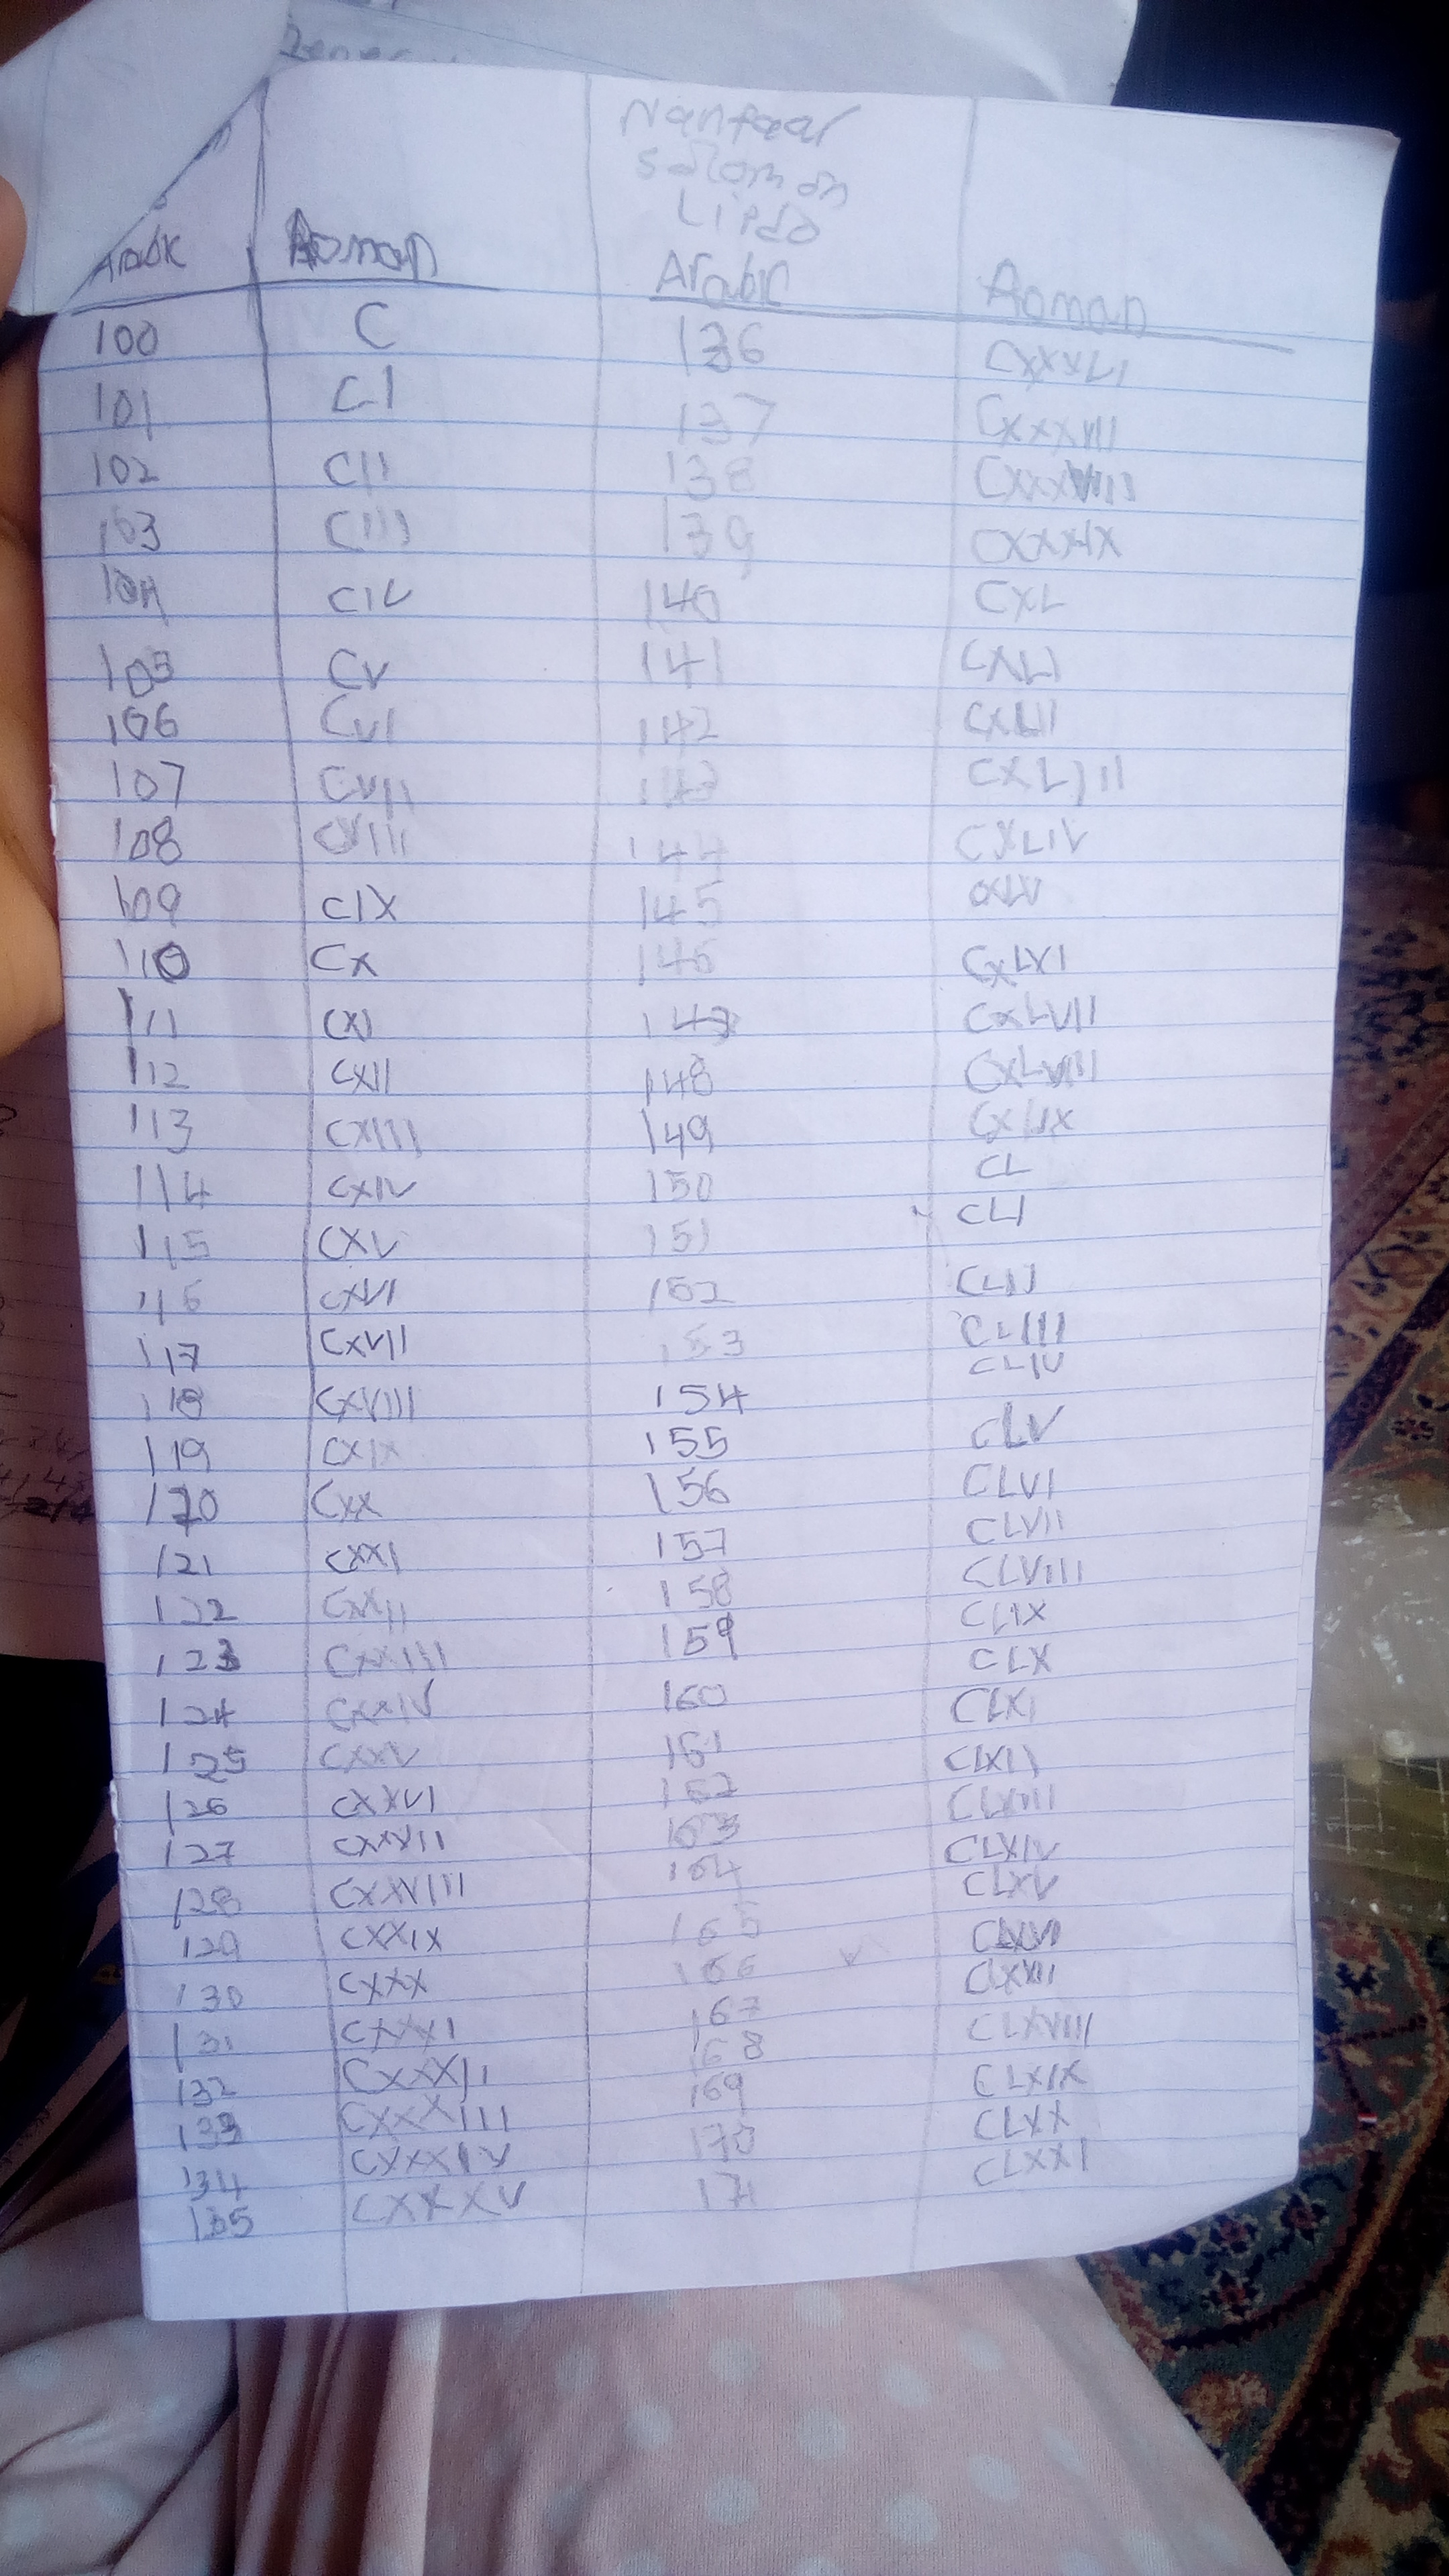 Nanfaar
Solomon
Lipdo
Arabic Roman Arabic Roman
100 C 136 CXXXLI
101 CI 137 CXXXVII
102 CII 138 CXXXVIII
103 CIII 139 CXXXIX
104 CIV 140 CXL
105 CV 141 CXLI
106 CVI 142 CXLII
107 CVII 143 CXLIII
108 CVIII 144 CXLIV
109 CIX 145 CXLV
110 CX 146 CXLVI
111 CXI 147 CXLVII
112 CXII 148 CXLVIII
113 CXIII 149 CXLIX
114 CXIV 150 CL
115 CXV 151 CLI
116 CXVI 152 CLII
117 CXVII 153 CLIII
118 CXVIII 154 CLIV
119 CXIX 155 CLV
120 CXX 156 CLVI
121 CXXI 157 CLVII
122 CXXII 158 CLVIII
123 CXXIII 159 CLIX
124 CXXIV 160 CLX
125 CXXV 161 CLXI
126 CXXVI 162 CLXII
127 CXXVII 163 CLXIII
128 CXXVIII 164 CLXIV
129 CXXIX 165 CLXV
130 CXXX 166 CLXVI
131 CXXXI 167 CLXXII
132 CXXXII 168 CLXVIII
133 CXXXIII 169 CLXIX
134 CXXXIV 170 CLXX
135 CXXXV 171 CLXXI